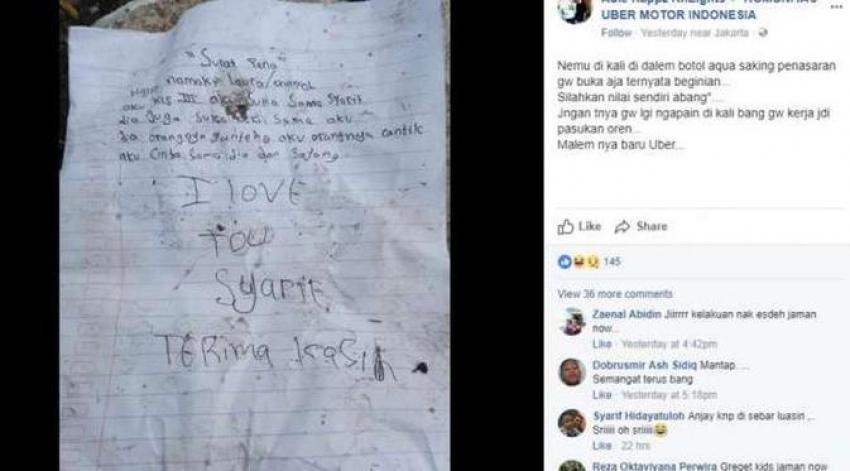 "Surat Pena"
namaku Laura/chamok
aku kls III aku suka Sama Syarif
dia Juga suka Sama aku
dia orangnya aku orangnya cantik
aku Cinta Sama dia dan Sayang
I LOVE
YOU
SYARIF
TERima kasih
UBER MOTOR INDONESIA
Follow · Yesterday near Jakarta ·
Nemu di kali di dalem botol aqua saking penasaran
gw buka aja ternyata beginian...
Silahkan nilai sendiri abang"....
Jngan tnya gw lgi ngapain di kali bang gw kerja jdi
pasukan oren...
Malem nya baru Uber...
Like Share
145
View 36 more comments
Zaenal Abidin Jiirrrr kelakuan nak esdeh jaman
now...
Like · Yesterday at 4:42pm
Dobrusmir Ash Sidiq Mantap....
Semangat terus bang
Like · Yesterday at 5:18pm
Syarif Hidayatuloh Anjay knp di sebar luasin ,.
Sriiii oh sriiii😂
Like · 22 hrs
Reza Oktaviyana Perwira Greget kids jaman now